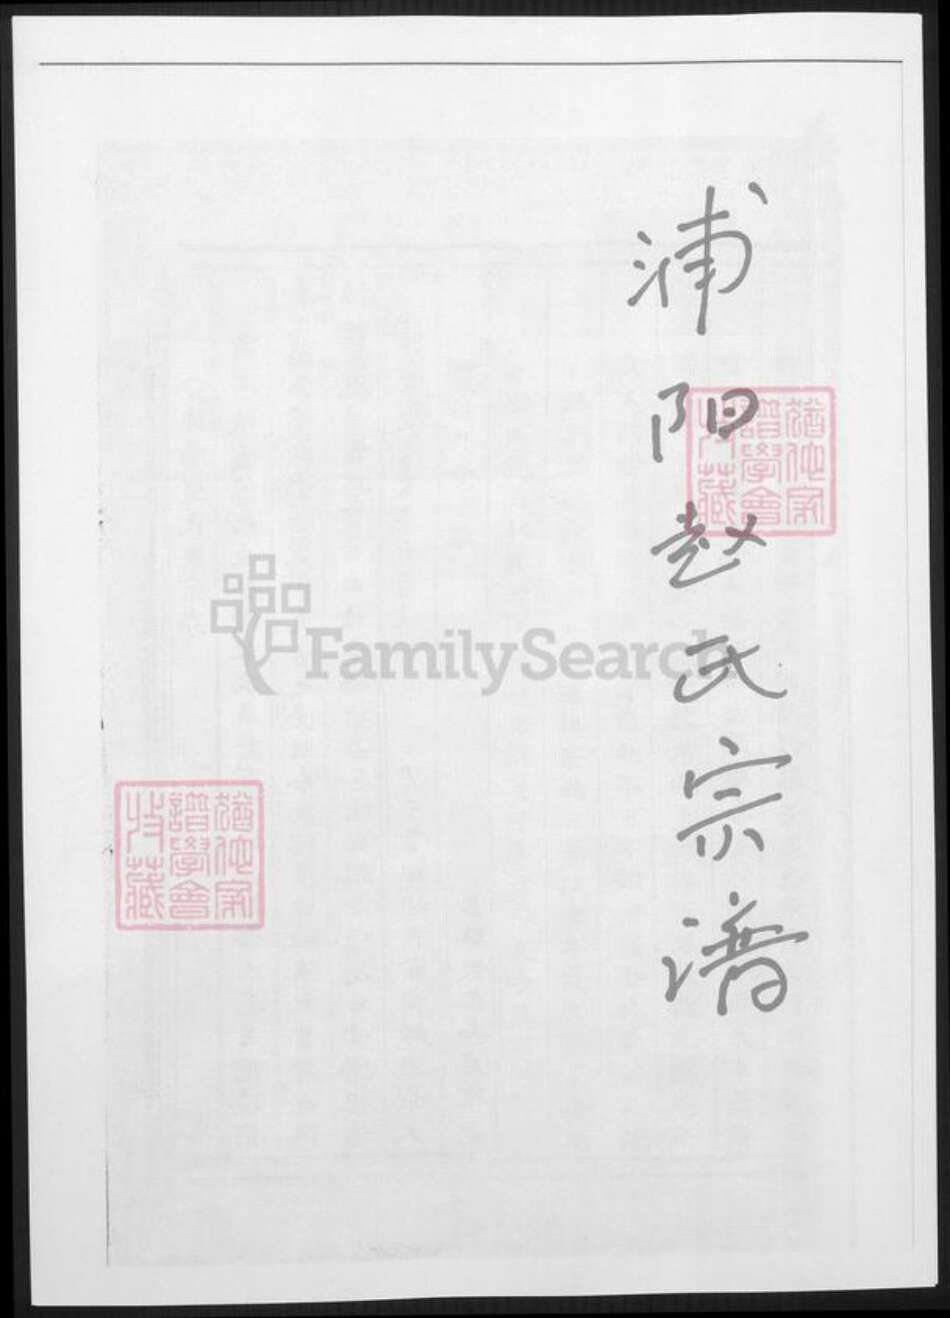 浦阳赵氏宗谱
猶他家
譜學會
收藏
FamilySearch
猶他家
譜學會
收藏